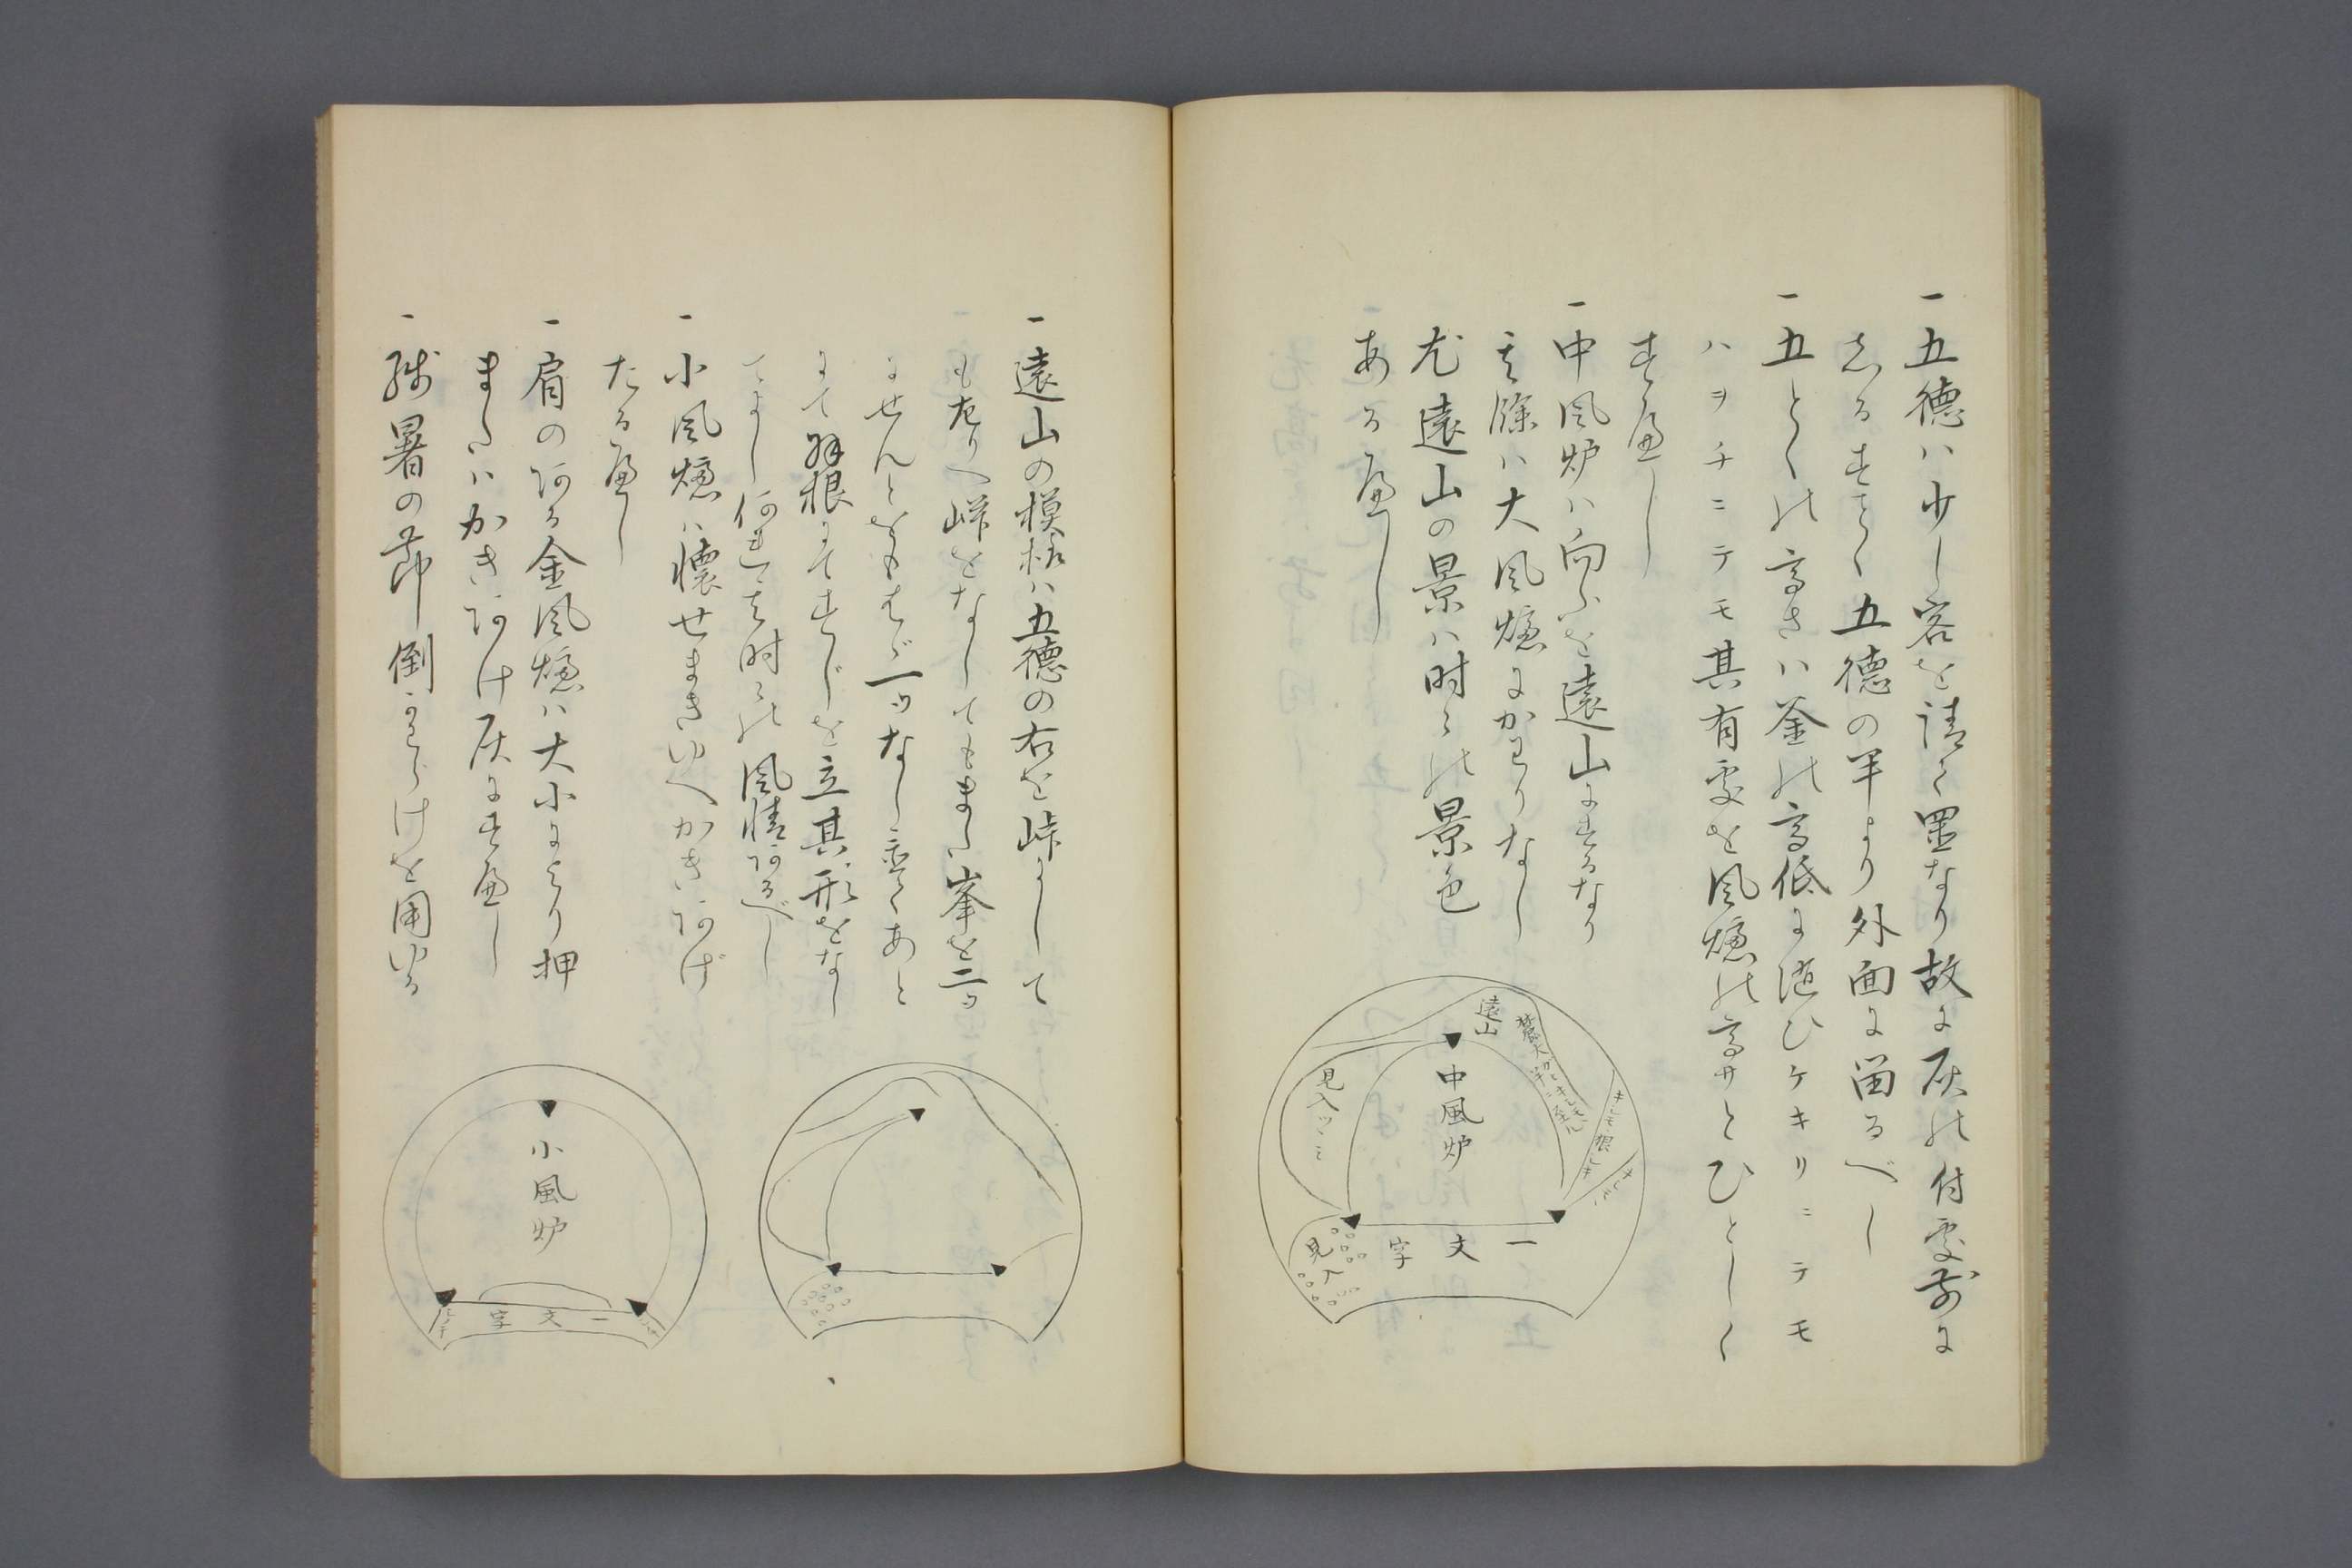 一五徳ハ少し客を請て置なり故に灰の付処前に
五徳の半より外面に留るべし
一五とくの高さハ釜の高低に随ひケキリニテモ
ハヲチニテモ其有処を風爐の高サとひとしく
すべし
一中風炉ハ向ふを遠山にするなり
其餘ハ大風爐にかわりなし
尤遠山の景ハ时々の景色
ある べし
一遠山の模様ハ五徳の右を峠にして
も左りへ峠をなしてもまた峯を二ツ
にせんとをもはゞ一ツなし置くあと
にて羽根にてすじを立其形をなし
てよし何れも其时々の風情あるべし
一小風爐ハ懐せまきゆへかきあげ
たるべし
一肩のある金風爐ハ大小により押
またハかきあけ灰にすべし
一残暑の节倒かわらけを用ゆる
遠山
見入ツヽミ
中風炉
一文字
見入
小風炉
一文字